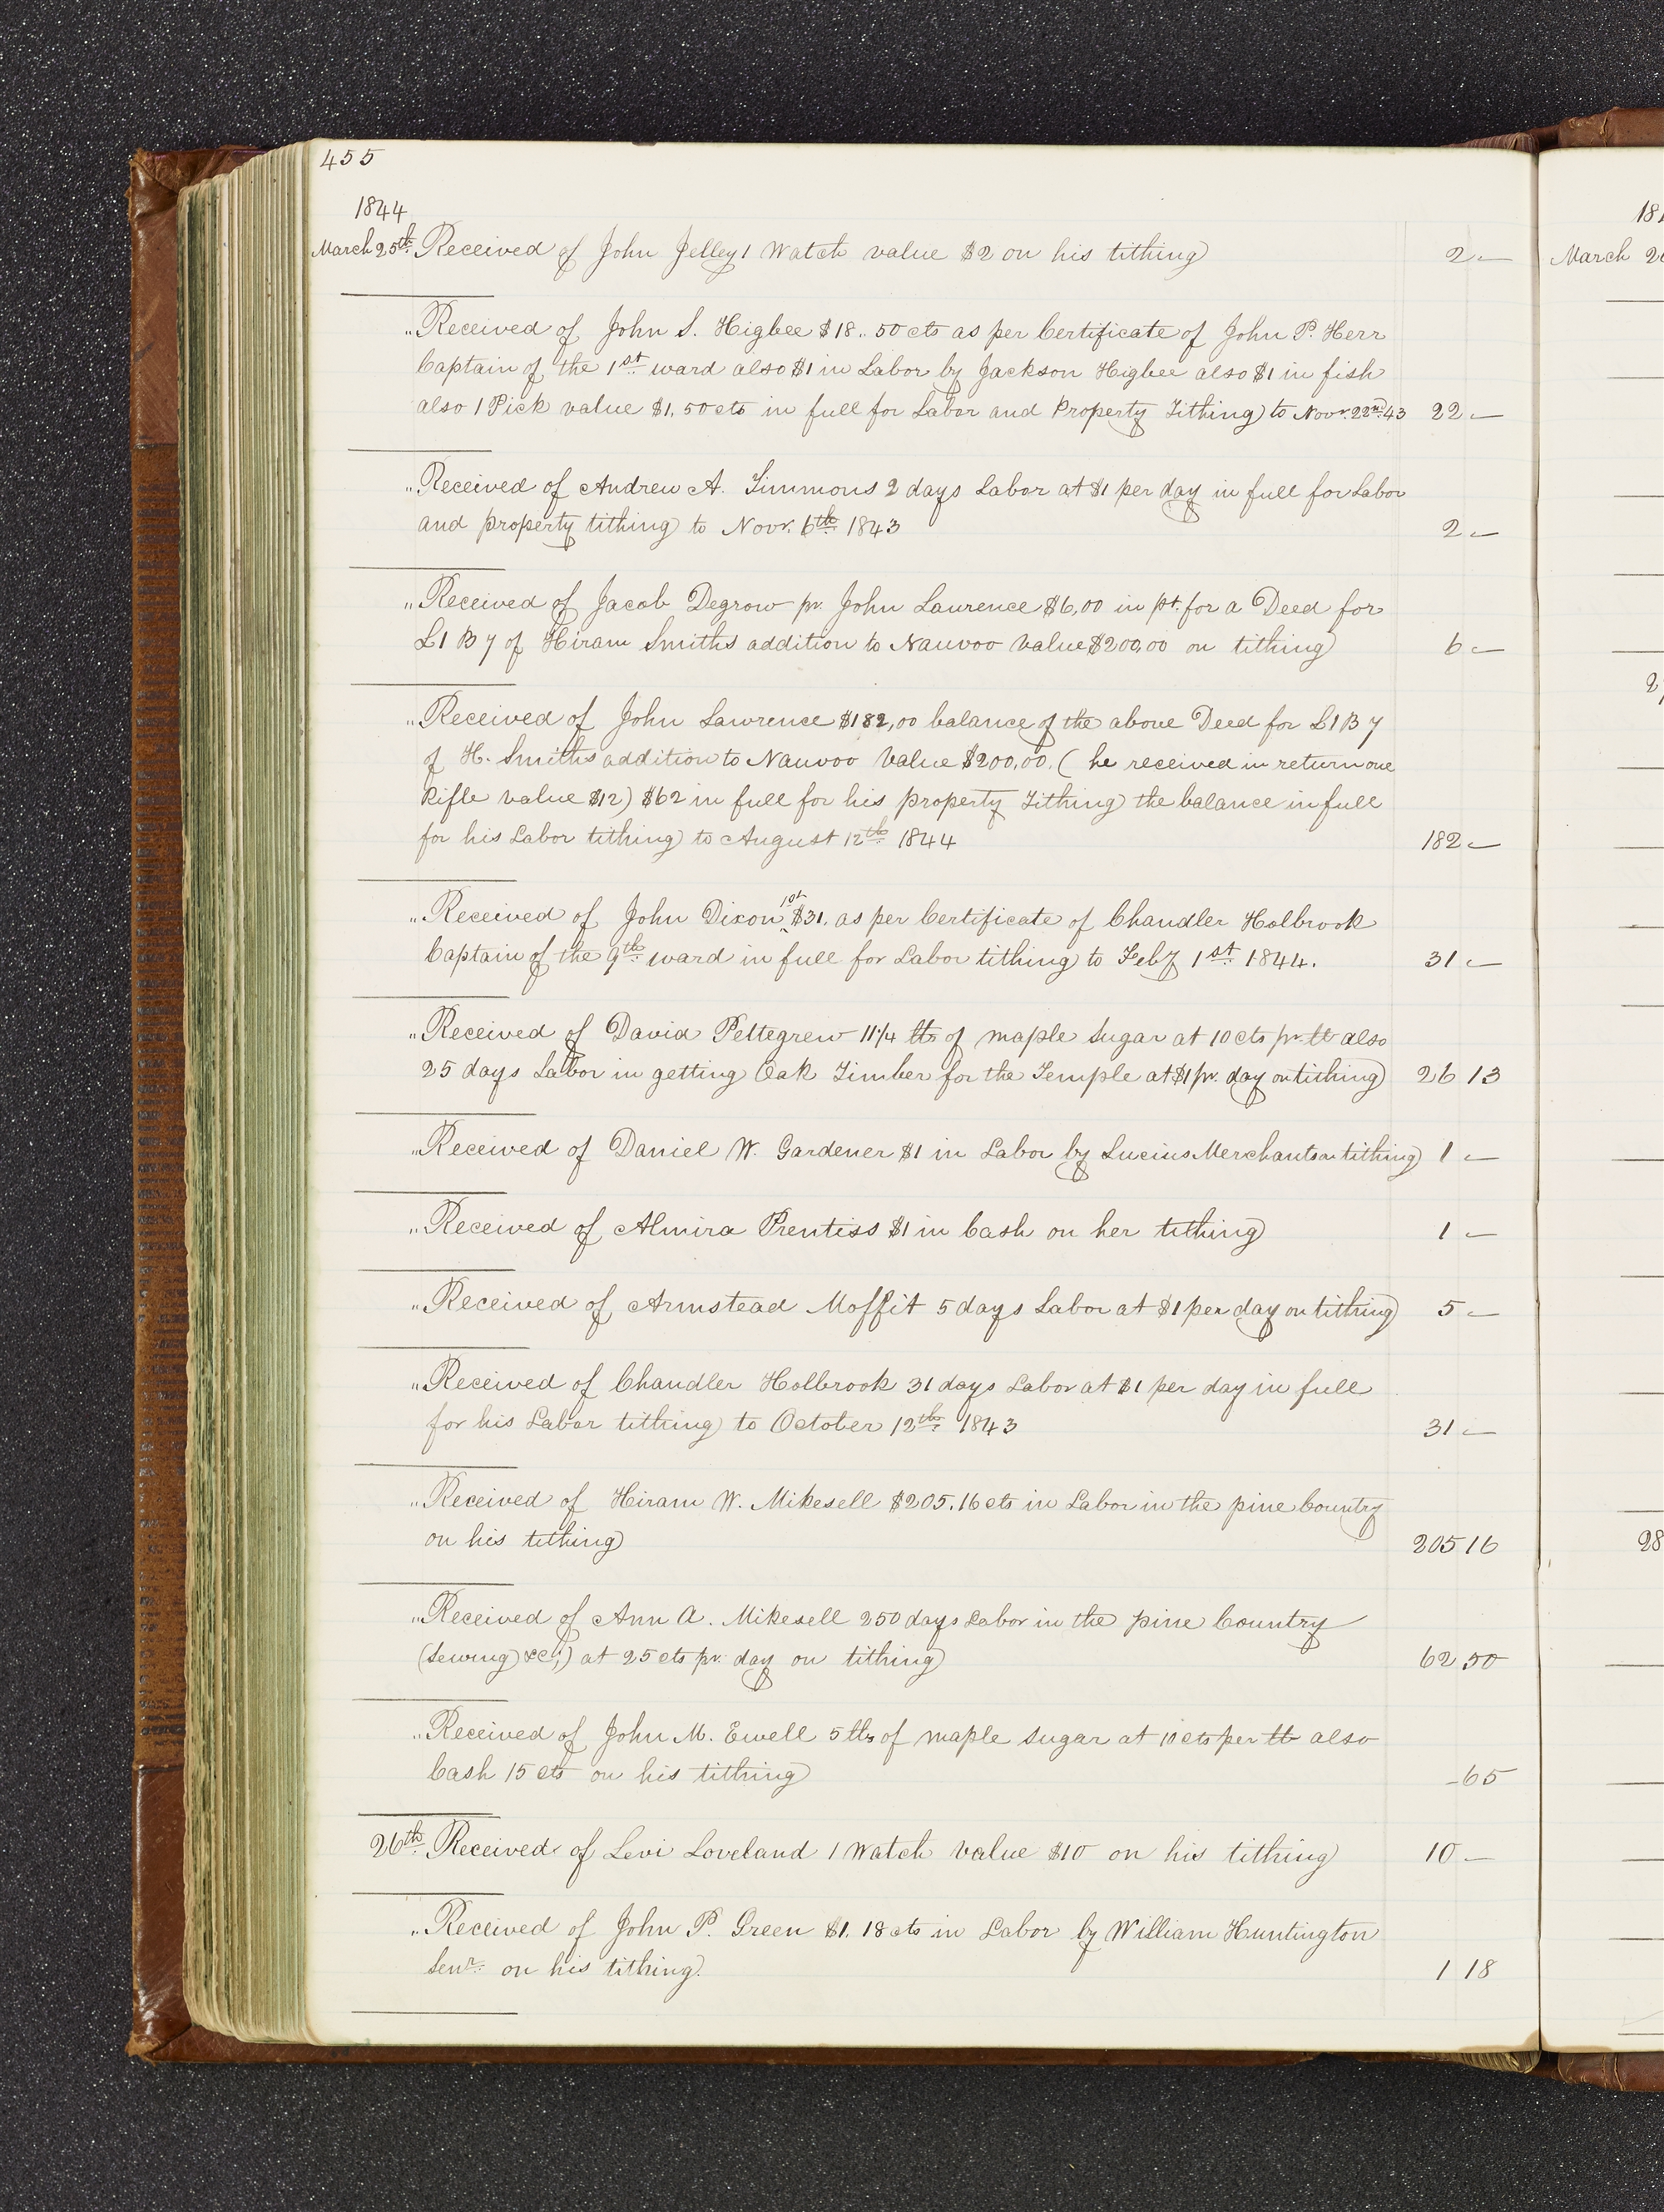 455
1844
March 25th. Received of John Jelley 1 Watch value $2 on his tithing 2 —
" Received of John S. Higbee $18.. 50 cts as per Certificate of John P. Herr
Captain of the 1st ward also $1 in Labor by Jackson Higbee also $1 in fish
also 1 Pick value $1,50 cts in full for Labor and Property Tithing to Novr. 22nd. 43 22 —
" Received of Andrew A. Timmons 2 days Labor at $1 per day in full for Labor
and property tithing to Novr. 6th. 1843 2 —
" Received of Jacob Degrow pr. John Laurence $6,00 in pt. for a Deed for
L1 B 7 of Hiram Smiths addition to Nauvoo value $200,00 on tithing 6 —
" Received of John Lawrence $182,00 balance of the above Deed for L1 B 7
of H. Smiths addition to Nauvoo value $200,00. (he received in return one
Rifle value $12) $62 in full for his property Tithing the balance in full
for his Labor tithing to August 12th. 1844 182 —
" Received of John Dixon 1st $31. as per Certificate of Chandler Holbrook
Captain of the 9th. ward in full for Labor tithing to Feby 1st 1844. 31 —
" Received of David Pettegrew 11 1/4 lbs of maple Sugar at 10 cts pr. lb also
25 days Labor in getting Oak Timber for the Temple at $1 pr. day on tithing 26 13
" Received of Daniel W. Gardener $1 in Labor by Lucius Merchants on tithing 1 —
" Received of Almira Prentiss $1 in Cash on her tithing 1 —
" Received of Armstead Moffit 5 days Labor at $1 per day on tithing 5 —
" Received of Chandler Holbrook 31 days Labor at $1 per day in full
for his Labor tithing to October 12th. 1843 31 —
" Received of Hiram W. Mikesell $205.16 cts in Labor in the pine Country
on his tithing 205 16
" Received of Ann A. Mikesell 250 days Labor in the pine Country
(Sewing &c,) at 25 cts pr. day on tithing 62 50
" Received of John M. Ewell 5 lbs of maple Sugar at 10 cts per lb also
Cash 15 cts on his tithing - 65
26th. Received of Levi Loveland 1 Watch value $10 on his tithing 10 —
" Received of John P. Green $1. 18 cts in Labor by William Huntington
Senr. on his tithing. 1 18
March 2
28